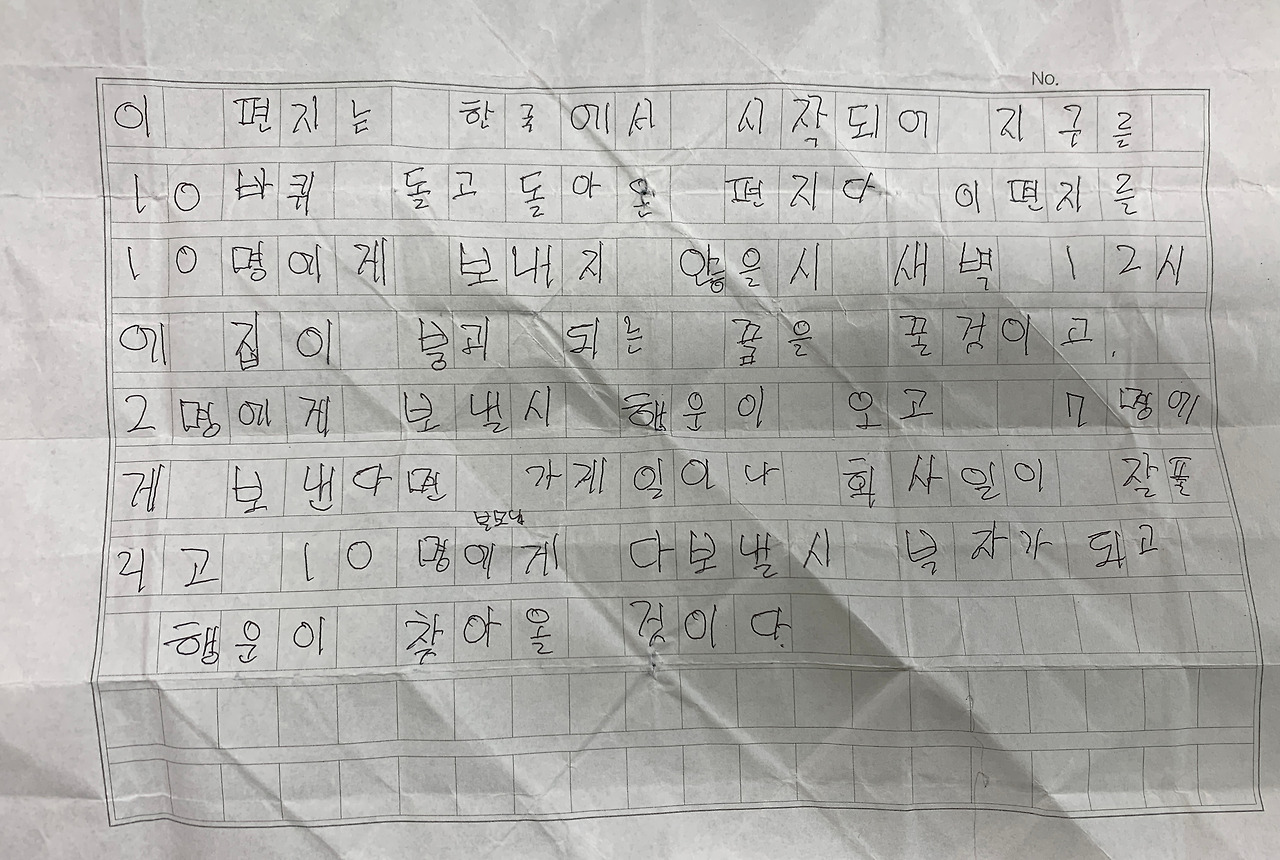 No.
이 편지는 한국에서 시작되어 지구를
10바퀴 돌고 돌아온 편지다 이편지를
10명에게 보내지 않을시 새벽 12시
에 집이 붕괴 되는 꿈을 꿀것이고.
2명에게 보낼시 행운이 오고 7명에
게 보낸다면 가게일이나 회사일이 잘풀
부모님
리고 10명에게 다보낼시 부자가 되고
행운이 찾아올 것이다.